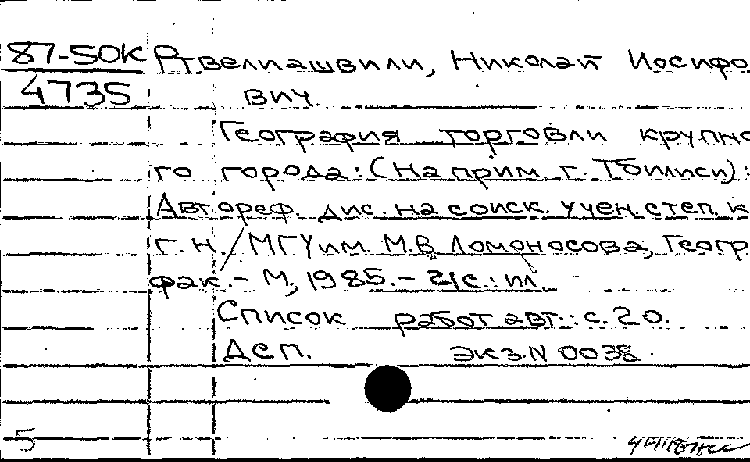 87-50К Ртвелиашвили, Николай Иосифо
4735 вич
География торговли крупно
го города: (На прим. г. Тбилиси):
Автореф. дис. на соиск. учен. степ. к.
г. н. / МГУ им. М.В. Ломоносова, Геогр.
фак. - М, 1985. - 21с.: ил.
Список работ авт.: с. 20.
Дсп. экз. N 0038.
5